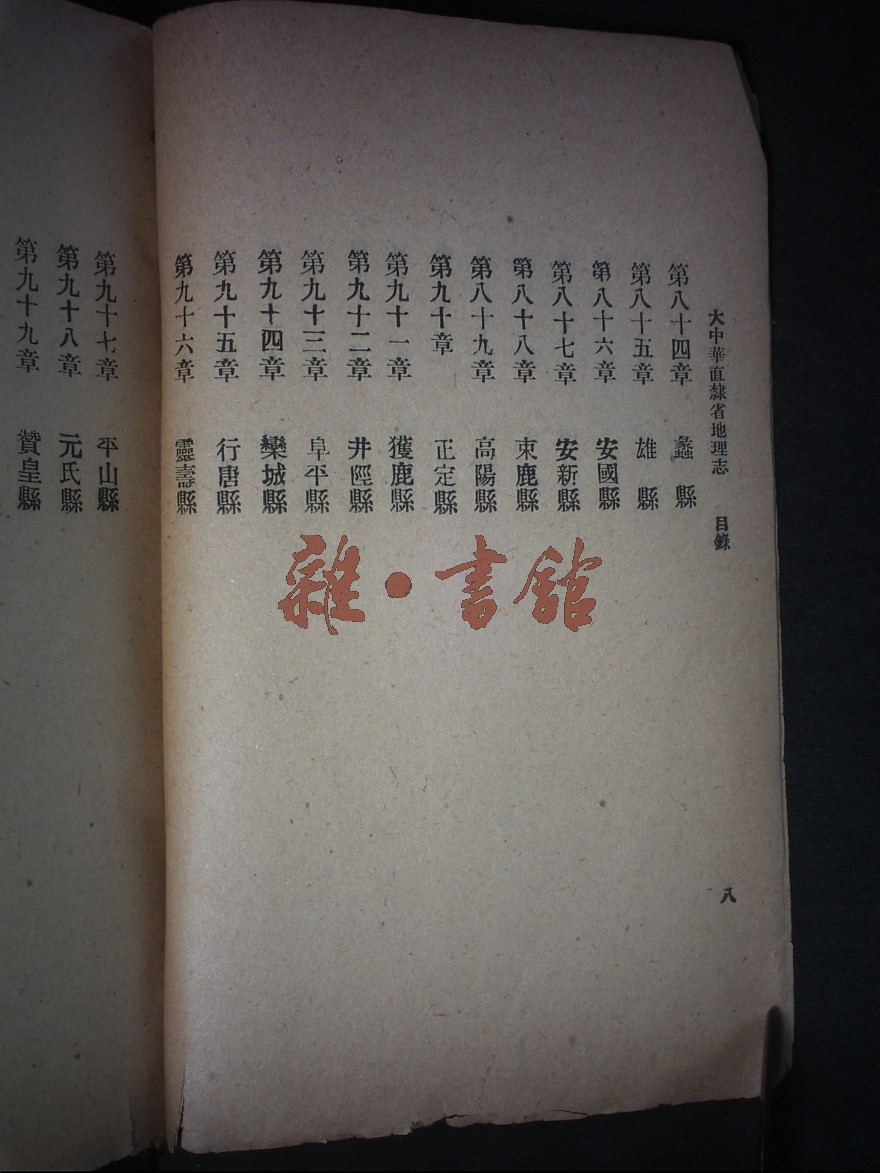 大中華直隸省地理志 目錄
第八十四章 蠡縣
第八十五章 雄縣
第八十六章 安國縣
第八十七章 安新縣
第八十八章 束鹿縣
第八十九章 高陽縣
第九十章 正定縣
第九十一章 獲鹿縣
第九十二章 井陘縣
第九十三章 阜平縣
第九十四章 欒城縣
第九十五章 行唐縣
第九十六章 靈壽縣
八
第九十七章 平山縣
第九十八章 元氏縣
第九十九章 贊皇縣
雜·書館